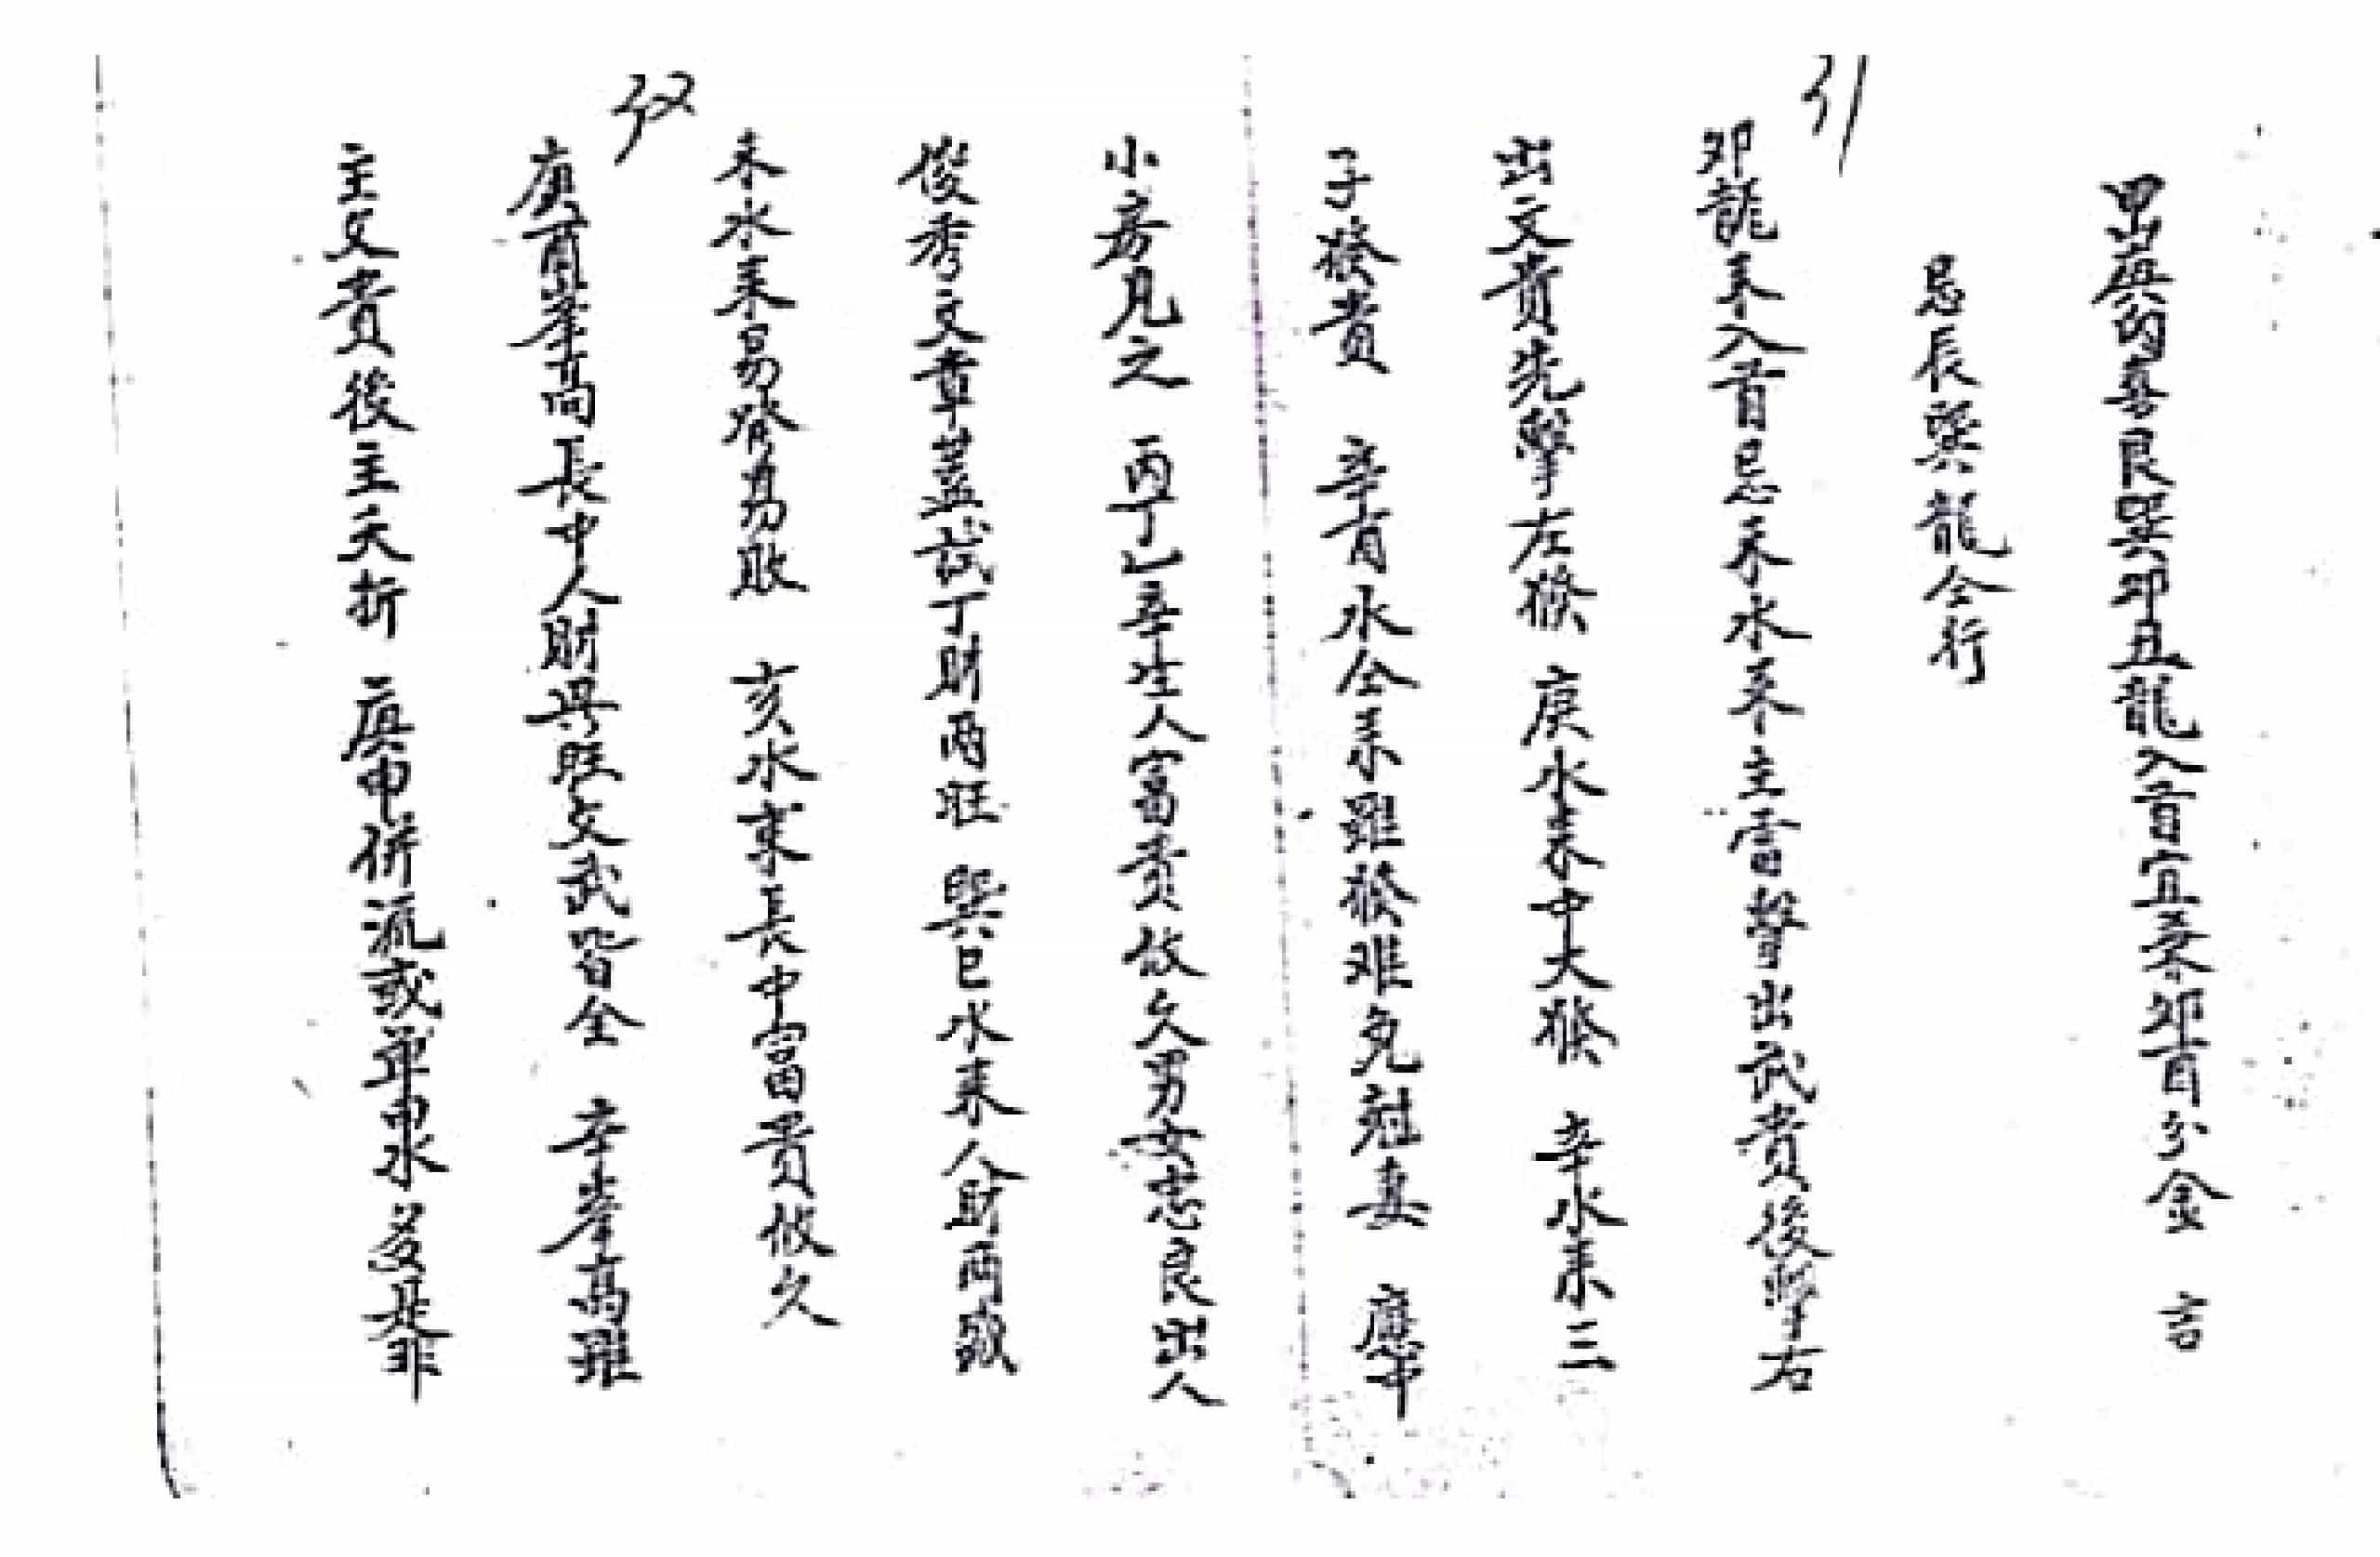 甲山庚向喜艮巽卯丑龍入首宜奉卯酉分金 吉
忌辰巽龍仝行
卯龍来入首忌未水来主富聲出武貴後擊右
出文貴先擊左發 庚水来中大發 辛水来三
子發貴 辛酉水仝来雖發难免尅妻 庚申
小房見之 丙丁乙辛生人富貴攸久男女忠良出人
俊秀文章蓋試丁財両旺 巽巳水来人財両盛
未水来易發易敗 亥水来長中富貴攸久
庚酉峯高長中人財興旺文武皆全 辛峯高雖
主文貴後主夭折 庚申併流或单申水多是非